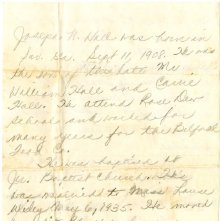 Joseph N. Hall was born in
Jon. Ga. Sept 11, 1908. He was
the son of the late Mr.
William Hall and Carrie
Hall. He attend
School and worked for
many years for the
He was baptized at
Baptist Church. He
was married to
May 6, 1935. He moved